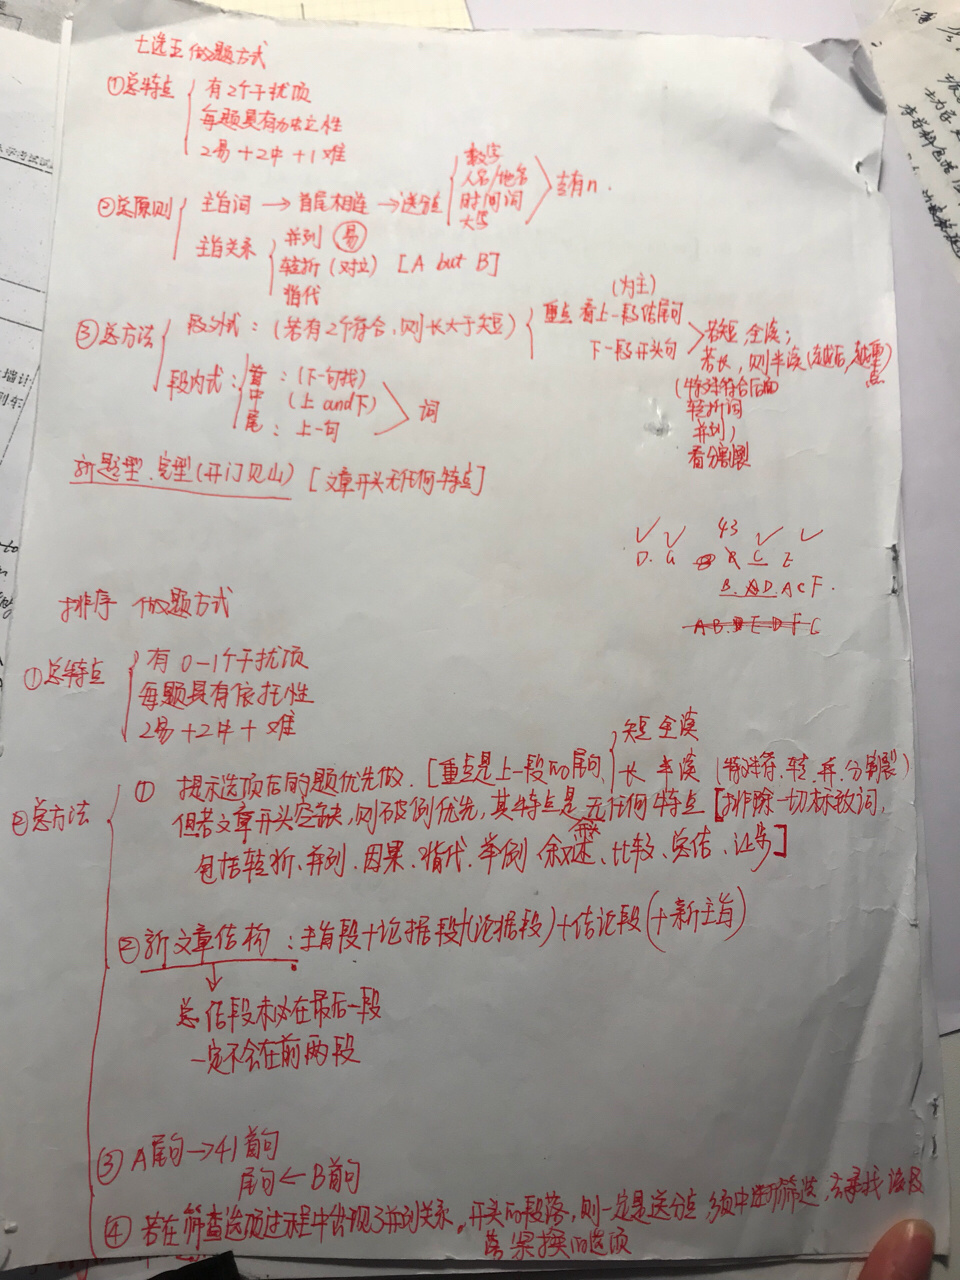 七选五 做题方式
①总特点
有2个干扰项
每题具有独立性
2易+2中+1难
②总原则
主旨词 → 首尾相连 → 送分点
数字
人名/地名
时间词
大写
含有n.
主旨关系
并列 易
转折 (对立) [A but B]
指代
③总方法
段外式: (若有2个符合,则长大于短)
(为主)
重点 看上一段结尾句
下一段开头句
若短,全读;
若长,则半读(越后,越重点
(特殊符合后面
转折词
并列)
看分割裂
段内式:
首: (下一句找)
中 (上 and 下)
尾: 上一句
词
新题型.完型(开门见山) [文章开头无任何特点]
43
D. G C E
B. D. A C F.
A B. E D F C
排序 做题方式
①总特点
有 0-1个干扰项
每题具有依托性
2易+2中+难
②总方法
① 提示选项后的题优先做. [重点是上一段的尾句
短 全读
长 半读 (特殊符、转、并、分割裂)
但若文章开头空缺,则破例优先,其特点是无任何特点 [排除一切标致词,
包括转折、并列、因果、指代、举例 叙述、比较、总结、让步]
②新文章结构:主旨段+论据段+(论据段)+结论段(+新主旨)
总结段未必在最后一段
一定不会在前两段
③ A尾句→41首句
尾句←B首句
④ 若在筛查选项过程中出现了并列关系。开头的段落,则一定是送分点 多项中进行筛选,去寻找该段
落果换的选项